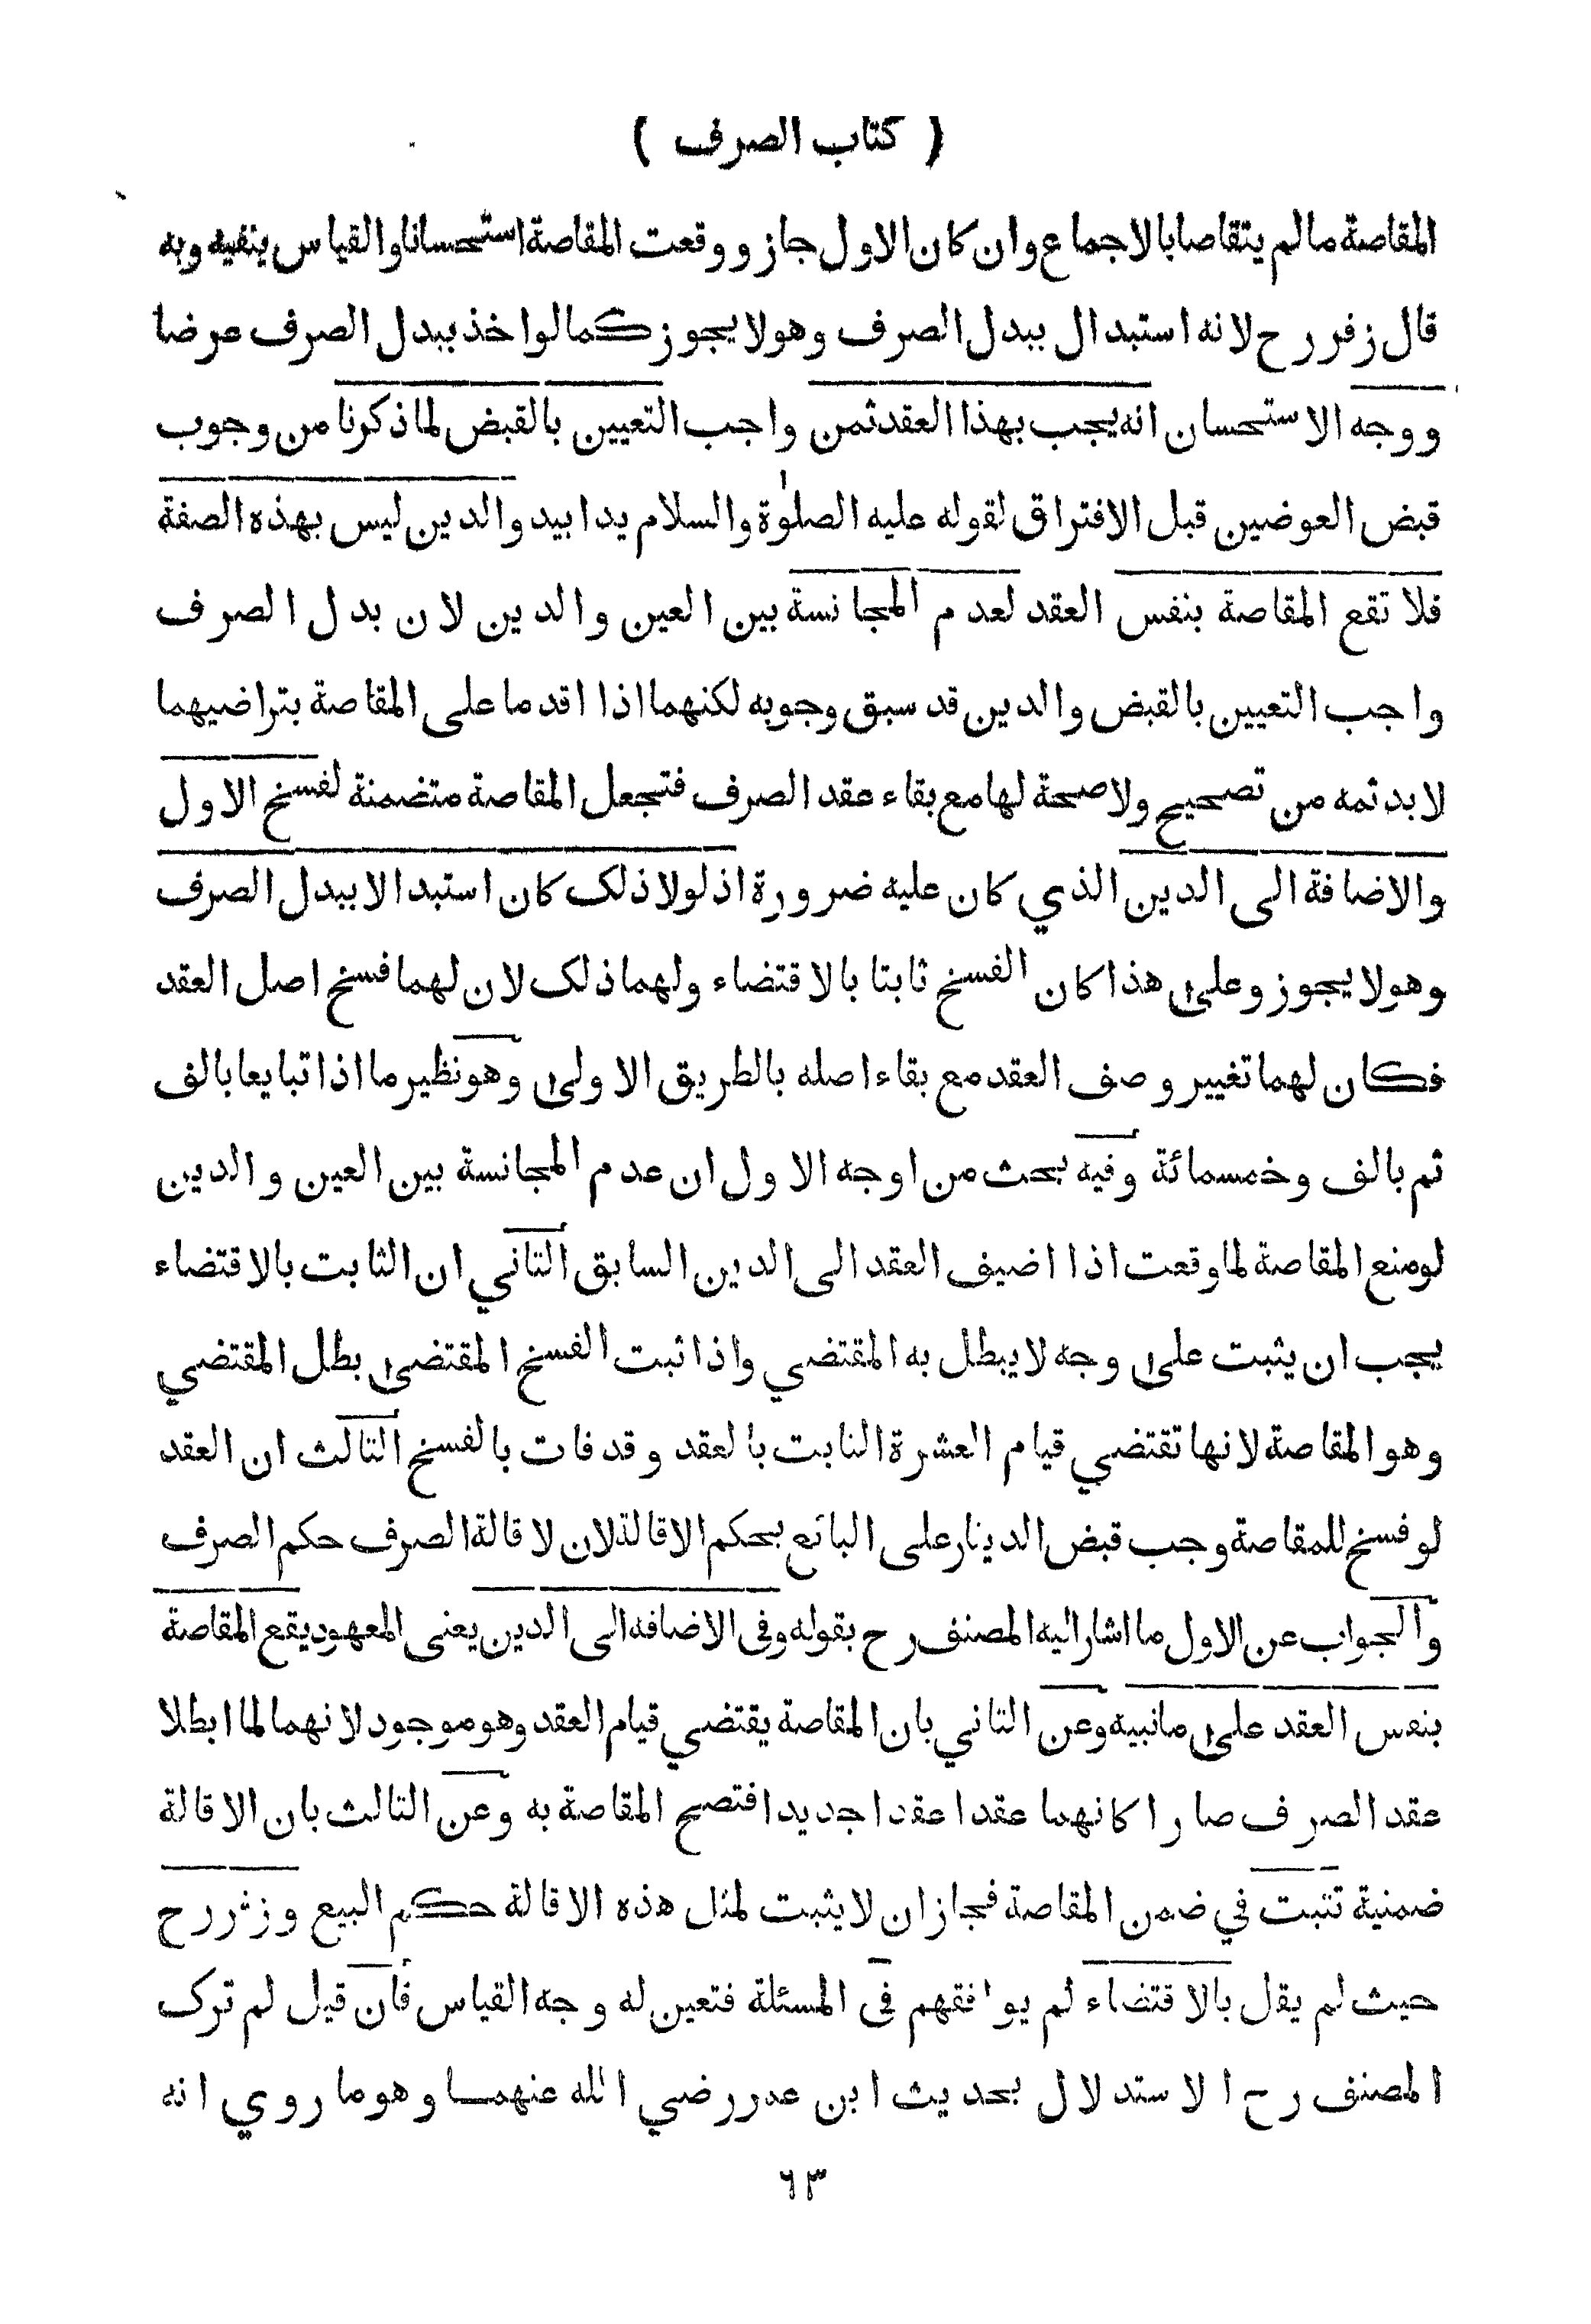 ( كتاب الصرف )
المقاصة مالم يتقاصا بالاجماع وان كان الاول جاز ووقعت المقاصة استحسانا والقياس ينفيه وبه
قال زفر رح لانه استبدال ببدل الصرف وهو لا يجوز كما لو اخذ ببدل الصرف عرضا
ووجه الاستحسان انه يجب بهذا العقد ثمن واجب التعيين بالقبض لما ذكرنا من وجوب
قبض العوضين قبل الافتراق لقوله عليه الصلوٰة والسلام يدا بيد والدين ليس بهذه الصفة
فلا تقع المقاصة بنفس العقد لعدم المجانسة بين العين والدين لان بدل الصرف
واجب التعيين بالقبض والدين قد سبق وجوبه لكنهما اذا اقدما على المقاصة بتراضيهما
لابد ثمه من تصحيح ولا صحة لها مع بقاء عقد الصرف فتجعل المقاصة متضمنة لفسخ الاول
والاضافة الى الدين الذي كان عليه ضرورة اذ لولا ذلك كان استبدالا ببدل الصرف
وهو لا يجوز وعلىٰ هذا كان الفسخ ثابتا بالاقتضاء ولهما ذلك لان لهما فسخ اصل العقد
فكان لهما تغيير وصف العقد مع بقاء اصله بالطريق الاولىٰ وهو نظير ما اذا تبايعا بالف
ثم بالف وخمسمائة وفيه بحث من اوجه الاول ان عدم المجانسة بين العين والدين
لو منع المقاصة لما وقعت اذا اضيف العقد الى الدين السابق الثاني ان الثابت بالاقتضاء
يجب ان يثبت علىٰ وجه لا يبطل به المقتضي واذا ثبت الفسخ المقتضىٰ بطل المقتضي
وهو المقاصة لانها تقتضي قيام العشرة الثابت بالعقد وقد فات بالفسخ الثالث ان العقد
لو فسخ للمقاصة وجب قبض الدينار على البائع بحكم الاقالة لان لاقالة الصرف حكم الصرف
والجواب عن الاول ما اشار اليه المصنف رح بقوله وفى الاضافه الى الدين يعنى المعهود يقع المقاصة
بنفس العقد علىٰ مانبيه وعن الثاني بان المقاصة يقتضي قيام العقد وهو موجود لانهما لما ابطلا
عقد الصرف صارا كانهما عقدا عقدا جديدا فتصح المقاصة به وعن الثالث بان الاقالة
ضمنية تثبت في ضمن المقاصة فجاز ان لا يثبت لمثل هذه الاقالة حكم البيع وزفر رح
حيث لم يقل بالاقتضاء لم يوافقهم فى المسئلة فتعين له وجه القياس فان قيل لم ترك
المصنف رح الاستدلال بحديث ابن عمر رضي الله عنهما وهو ما روي انه
٦٣